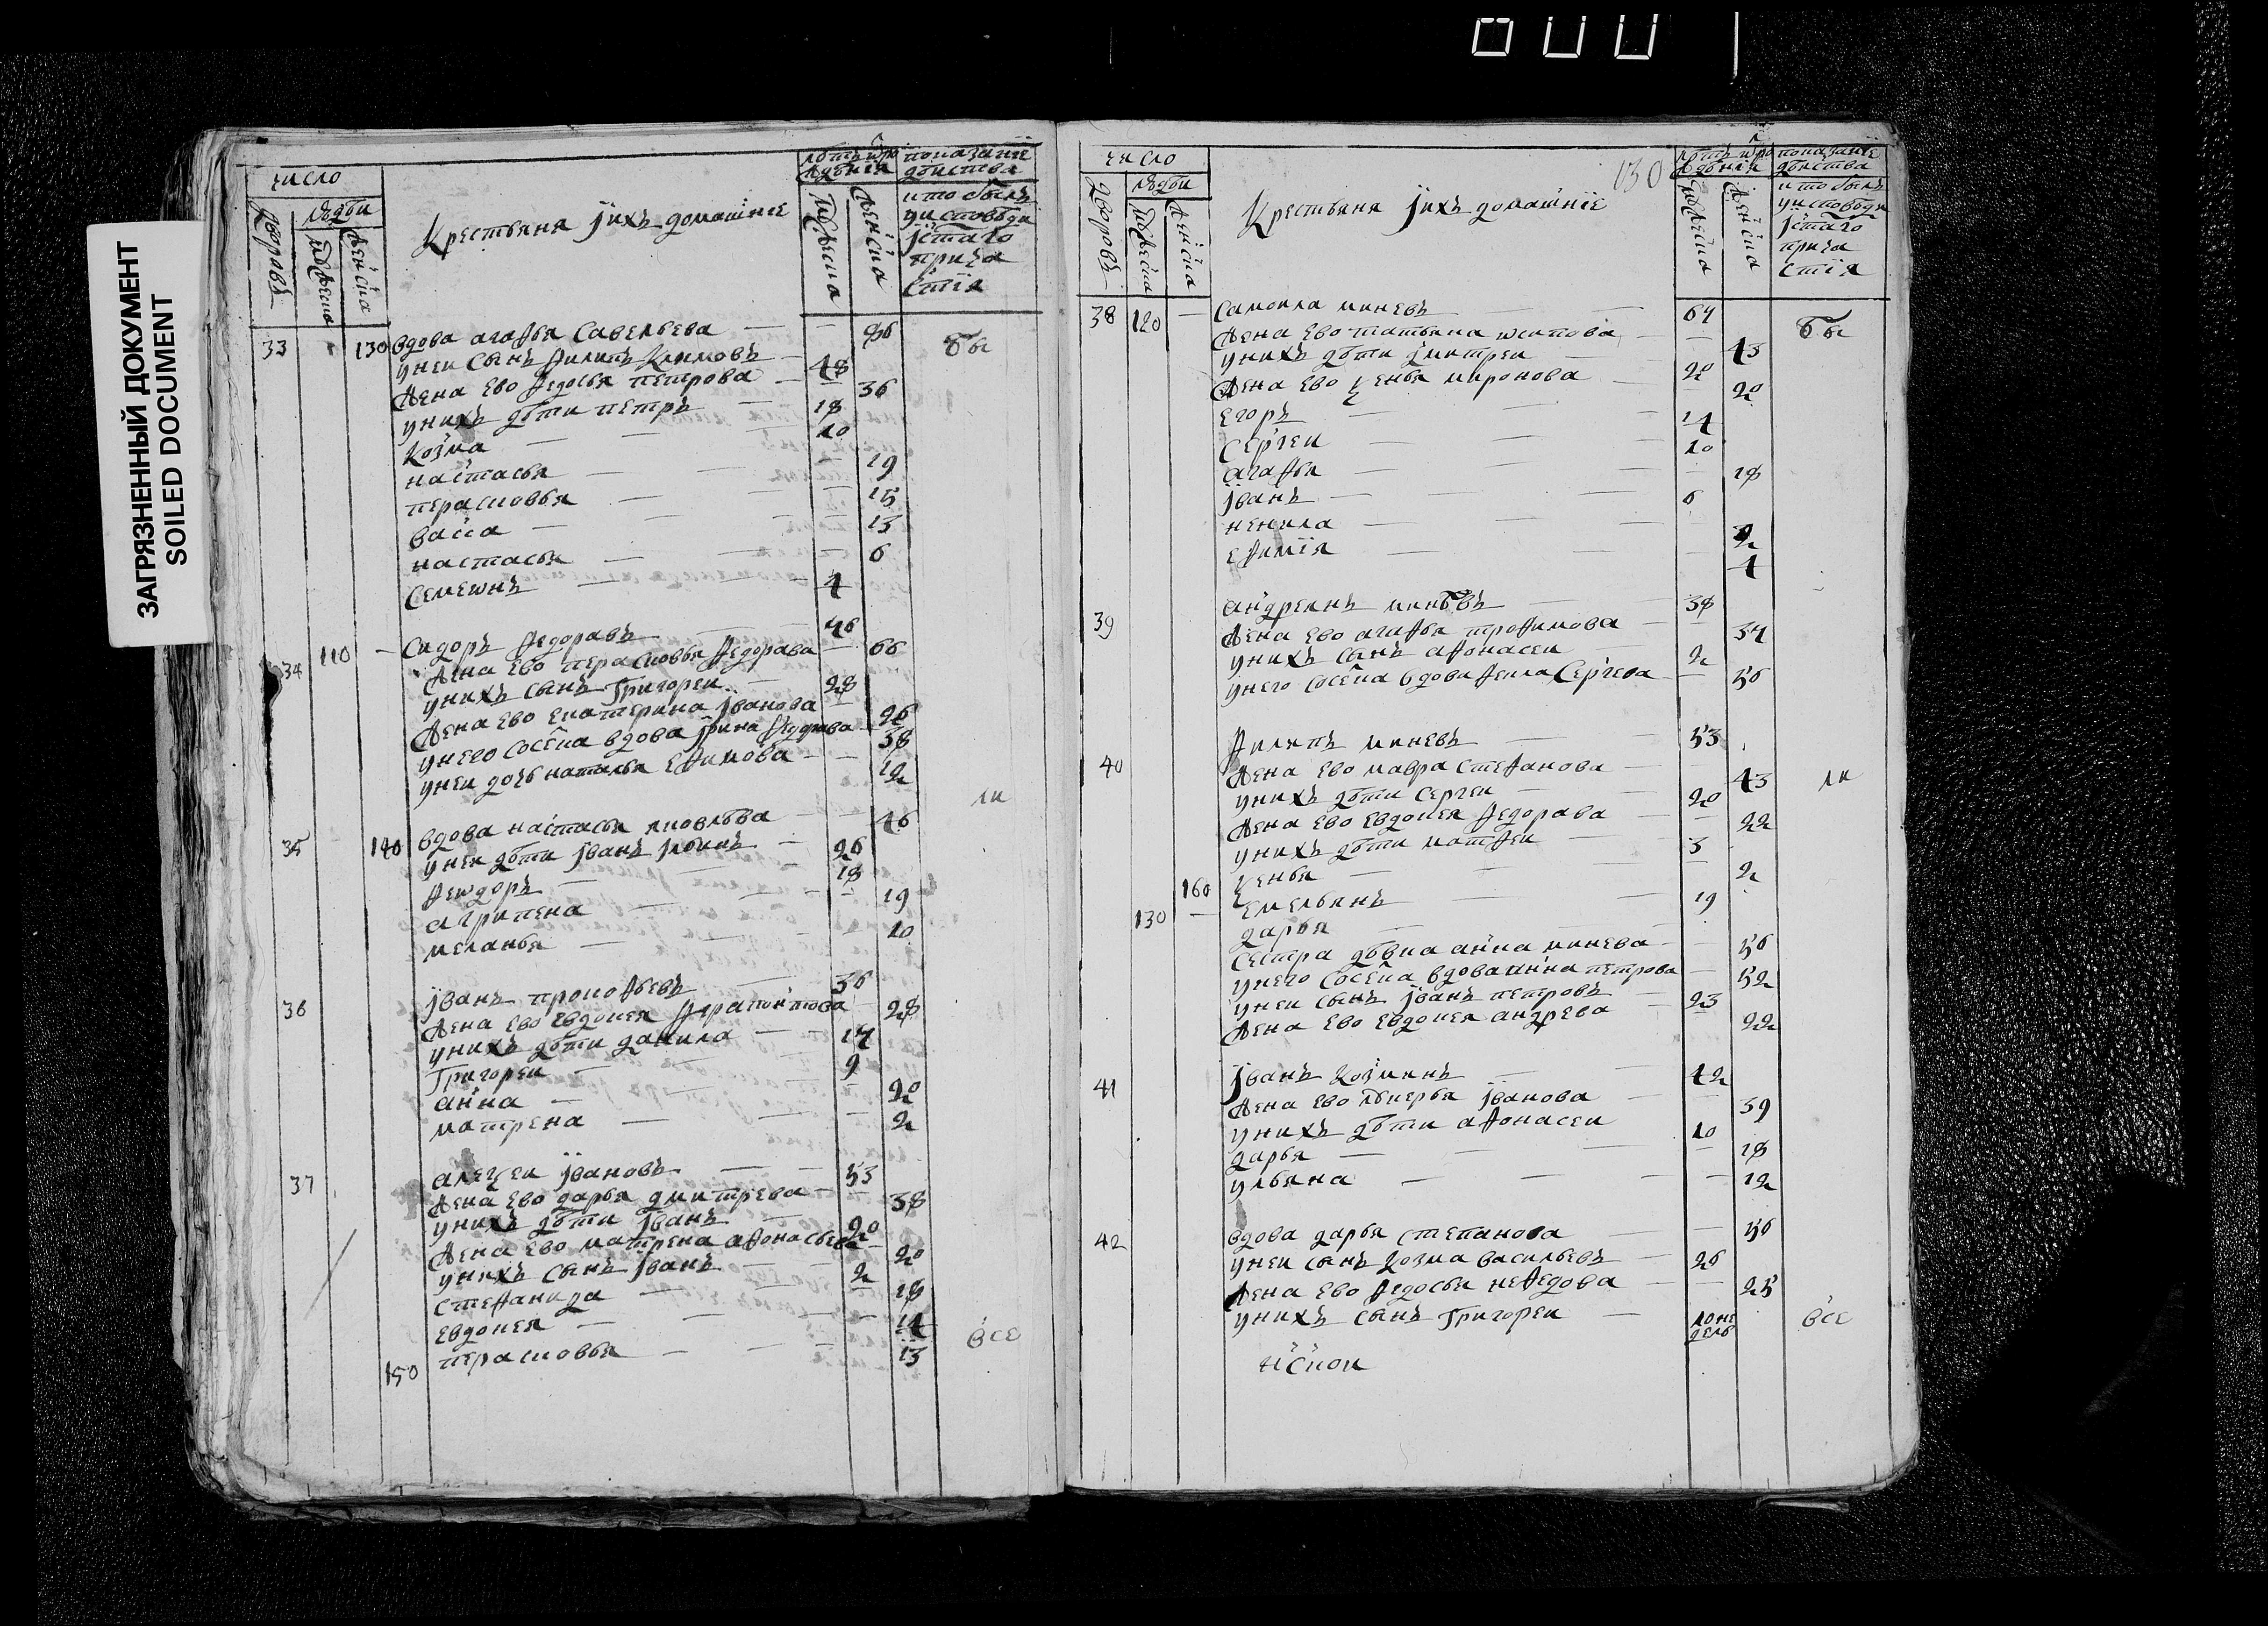 ЗАГРЯЗНЕННЫЙ ДОКУМЕНТ
SOILED DOCUMENT
число
дворовъ
людей
мужеска
женска
Крестьяня ихъ домашние
лѣтъ от рождения
мужеска
женска
показание действа кто былъ у исповѣди и с[вя]таго причастия
33 130 вдова агафья Савельева — 86 бы
у неи сынъ филипъ Климовъ 48
жена ево федосья петрова — 36
у нихъ дѣти петръ 18
козма 10
настасья — 19
перасковья — 15
васса — 13
настасья — 6
семеонъ 4
34 110 — Сидоръ федоравъ 46
жена ево перасковья федорава — 66
у нихъ сынъ Григореи 28
жена ево екатерина иванова — 26
у него соседка вдова ирина федорава 38
у неи дочь наталья ефимова — 12
ли
35 140 вдова настасья яковлѣва — 46
у неи дѣти иванъ 26
феодоръ 18
агрипена — 19
меланья — 10
36 иванъ прокофьевъ 36
жена ево евдокея ферапонтова 28
у нихъ дѣти данила 17
Григореи 9
анна — 20
матрена — 2
37 алеѯеи ивановъ 53
жена ево дарья дмитрева — 38
у нихъ дѣти иванъ 20
жена ево матрена афонасьева 20
у нихъ сынъ иванъ 2
стефанида 18
евдокея — 14
150 перасковья — 13
все
130
число
дворовъ
людей
мужеска
женска
Крестьяня ихъ домашние
лѣтъ от рождения
мужеска
женска
показание действа кто былъ у исповѣди и с[вя]таго причастия
38 120 — самоила миневъ 64 бы
жена ево татьяна осипова — 43
у нихъ дѣти дмитреи 20
жена ево ѯенья миронова — 20
егоръ 14
сергеи 10
агафья — 18
иванъ 6
ненила
ефимия
2
4
39 андреянъ минѣвъ 38
жена ево агафья трофимова — 37
у нихъ сынъ афонасеи 2
у него соседка вдова фекла Сергева — 56
40 филипъ миневъ 53
жена ево мавра стефанова — 43 ли
у нихъ дѣти сергеи 20
жена ево евдокея федорава — 22
у нихъ дѣти матфеи 3
ѯенья — 2
130 160 емельянъ 19
дарья
сестра дѣвка анна минева — 56
у него соседка вдова анна петрова — 52
у неи сынъ иванъ петровъ 23
жена ево евдокея андрева — 22
41 иванъ козминъ 42
жена ево лѣкерья иванова — 39
у нихъ дѣти афонасеи 10
дарья — 18
ульяна — 12
42 вдова дарья степанова — 56
у неи сынъ козма васильевъ 26
жена ево федосья нефедова — 25
у нихъ сынъ Григореи 10 недель все